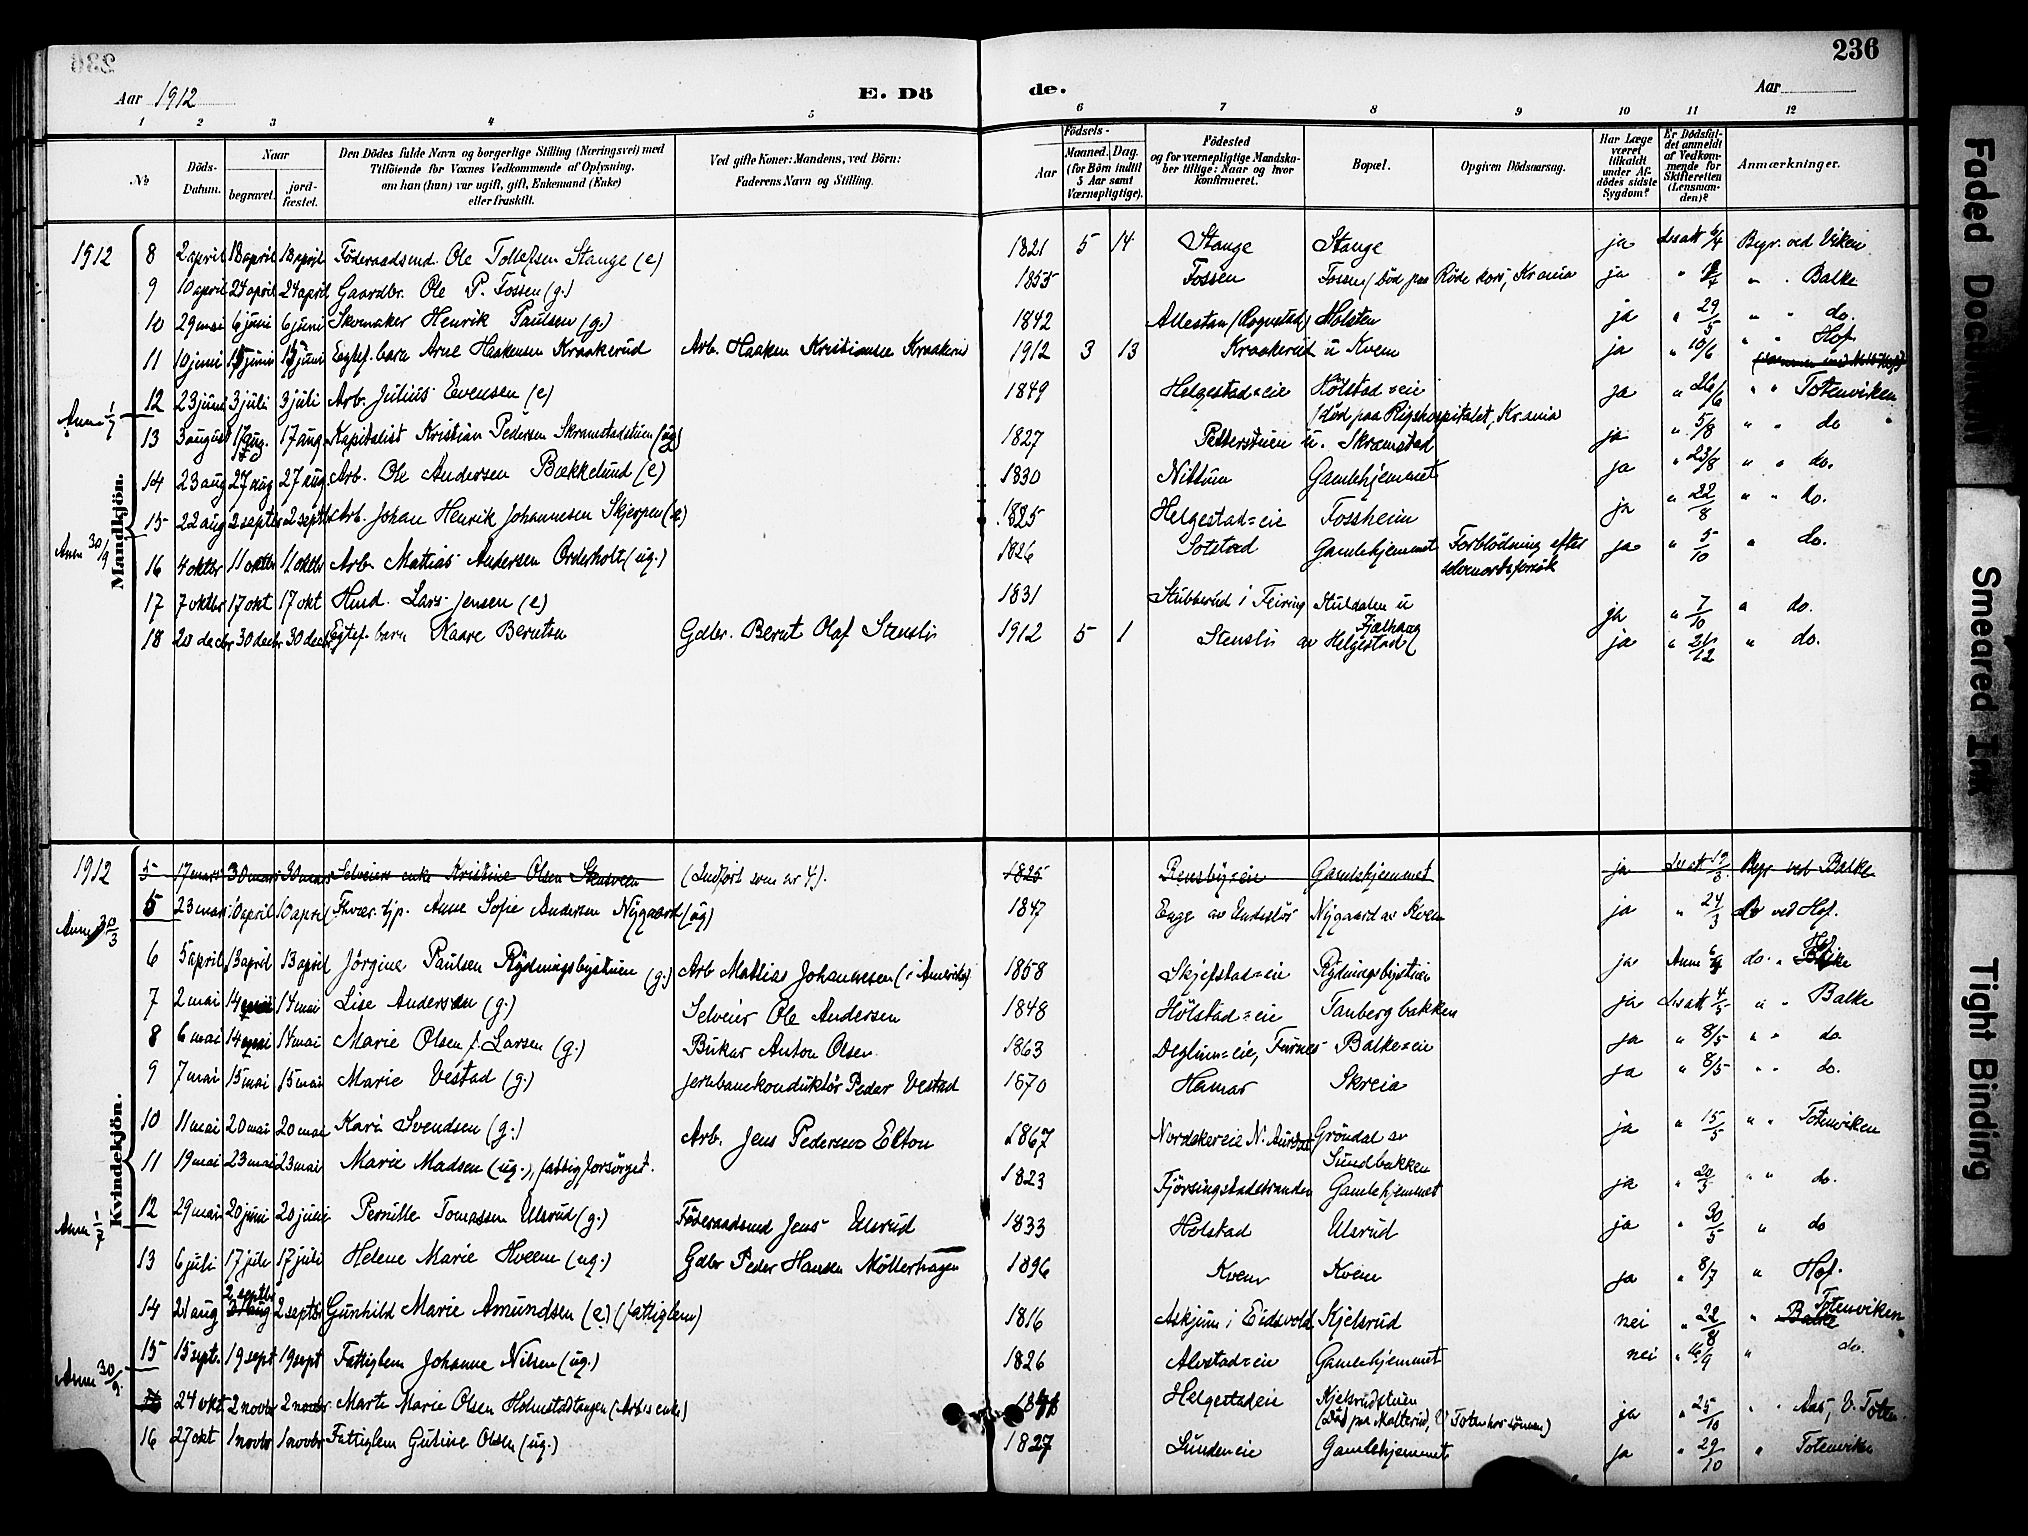 236
Aar 1912
E. Dö
de.
236
Aar
1 2 3 4 5 6 7 8 9 10 11 12
No
Döds-
Datum.
Naar
begravet.
jord-
fæstet.
Den Dödes fulde Navn og borgerlige Stilling (Næringsvei) med
Tilföiende for Voxnes Vedkommende af Oplysning,
om han (hun) var ugift, gift, Enkemand (Enke)
eller fraskilt.
Ved gifte Koner: Mandens, ved Börn:
Faderens Navn og Stilling.
Födsels-
Aar
Maaned. Dag.
(for Börn indtil
5 Aar samt
Værnepligtige).
Födested
og for værnepligtige Mandska-
ber tillige: Naar og hvor
konfirmeret.
Bopæl.
Opgiven Dödsaarsag.
Har Læge
været
tilkaldt
under Af-
dödes sidste
Sygdom?
Er Dödsfal-
det anmeldt
af Vedkom-
mende for
Skifteretten
(Lensman-
den)?
Anmærkninger.
1912
Mandkjön.
8 2 april 18 april 18 april Föderaadsmd. Ole Tollefsen Stange (e) 1821 5 14 Stange Stange ja Ls att 6/4 Begr. ved Viken
9 10 april 24 april 24 april Gaardbr. Ole P. Fossen (g.) 1855 Fossen Fossen (död paa Röde kors, Kr.ania ja " " " Balke
10 29 mai 6 juni 6 juni Skomaker Henrik Paulsen (g.) 1842 Allestan (Rognstad) Holsten ja " 29/5 " " do.
11 10 juni 15 juni 15 juni Egtef. barn Arne Haakensen Kraakerud Arb. Haaken Kristiansen Kraakerud 1912 3 13 Kraakerud u Kvem ja " 10/6 " " Hof
Anm 1/7
12 23 juni 3 juli 3 juli Arb. Julius Evensen (e) 1849 Helgestad=eie Hölstad=eie ja " 26/6 " " Totenviken
(död paa Rigshospitalet, Kr.ania
13 3 august 17 aug. 17 aug Kapitalist Kristian Pedersen Skramstadstuen (ug) 1827 Petterstuen u. Skramstad ja " 5/8 " " do
14 23 aug 27 aug 27 aug Arb. Ole Andersen Bækkelund (e) 1830 Nittum Gamlehjemmet ja " 23/8 " " do.
15 22 aug 2 septbr 2 septbr Arb. Johan Henrik Johannesen Skjerpen (e) 1825 Helgestad=eie Fossheim ja " 22/8 " " do.
Anm 30/9
16 4 oktbr 11 oktbr 11 oktbr Arb. Mathias Andersen Orderholt (ug.) 1826 Sotstad Gamlehjemmet Forblödning efter ja " 5/10 " do.
selvmordsforsök
17 7 oktbr 17 okt 17 okt Hmd. Lars Jensen (e) 1831 Stubberud i Feiring Stuldalen u ja " 7/10 " do.
Fjælhaug
18 20 decbr 30 decbr 30 decbr Egtef. barn Kaare Berntsen Gdbr. Bernt Olaf Stensli 1912 5 1 Stensli av Helgestad ja " 21/12 " do.
1912
Kvindekjön.
5 17 mars 30 mars 30 mars Selveiers enke Kristine Olsen Stensveen (Indført som nr 4). 1825 Rensby=eie Gamlehjemmet ja Ls att 19/3 Begr. ved Balke
5 23 mars 10 april 10 april Andersen Nygaard (ug) 1847 Enge av Endeslös Nygaard av Kvem ja " 24/3 do ved Hof.
Anm 30/3
6 5 april 13 april 13 april Jörgine Paulsen Rydningsbystuen (g.) Arb Mattias Johannesen (i Amerika) 1858 Skjefstad=eie Rydningsbystuen ja Anm 6/4 do. " Hof
Balke
7 2 mai 14 mai 14 mai Lise Andersen (g.) Selveier Ole Andersen 1848 Hölstad=eie Tanbergbakken ja Ls att 4/5 " " Balke
8 6 mai 14 mai 14 mai Marie Olsen f. Larsen (g.) Anton Olsen 1863 Deglum=eie, Furnes Balke=eie ja " 8/5 " " do.
9 7 mai 15 mai 15 mai Marie Vestad (g.) Jernbanekonduktör Peder Vestad 1870 Hamar Skreia ja " 8/5 " " do.
10 11 mai 20 mai 20 mai Kari Svendsen (g.) Arb. Jens Pedersen Elton 1867 Nordakereie N. Aurdal Gröndal av ja " 15/5 " " Totenviken
Sundbakken
11 19 mai 23 mai 23 mai Marie Madsen (ug.), fattigforsörget. 1823 Fjörsingstadstranden Gamlehjemmet ja " 20/5 " " do.
12 29 mai 20 juni 20 juni Pernille Tomassen Ulsrud (g.) Föderaadsmd Jens Ulsrud 1833 Holstad Ulsrud ja " 30/5 " do
Anm 1/7
13 6 juli 17 juli 17 juli Helene Marie Kveem (ug.) Gdbr Peder Hansen Möllerhagen 1896 Kvem Kvem ja " 8/7 " Hof.
14 21 aug 2 septbr 2 septbr Gunhild Marie Amundsen (e) (fattiglem) 1816 Askjum i Eidsvold Kjelsrud nei " 22/8 " Totenviken
Balke
15 15 sept. 19 sept 19 sept Fattiglem Johanne Nilsen (ug.) 1826 Alvstad=eie Gamlehjemmet nei " 16/9 " do.
Anm 30/9.
24 okt 2 novbr 2 novbr Marte Marie Olsen Holmstadtangen (Arb.s enke) Helgestadeie Kjelsrudstuen ja " 25/10 " " Aas, V. Toten
(Död paa Malterud, V Toten hos sönnen)
16 27 okt 1 novbr 1 novbr Fattiglem Gutine Olsen (ug.) 1827 Lundeneie Gamlehjemmet ja " 29/10 " Totenviken
Faded Document
Smeared Ink
Tight Binding